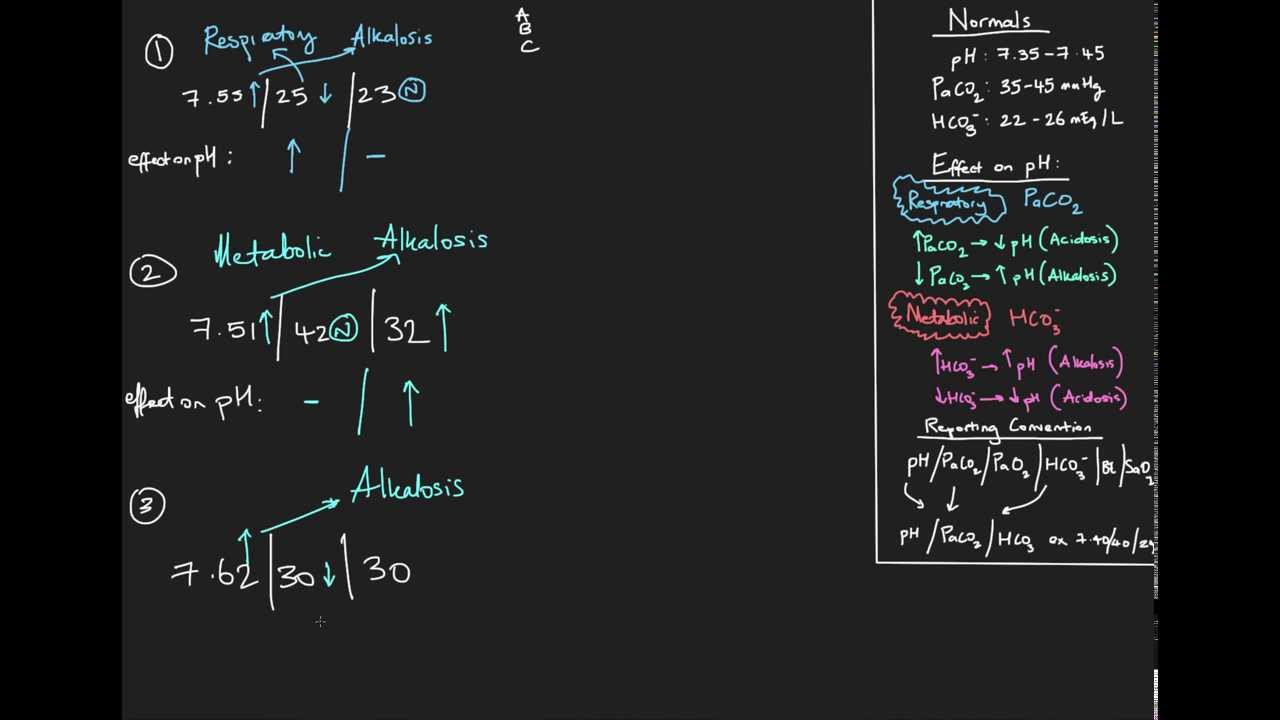 A
B
C
① Respiratory Alkalosis
7.55↑ | 25 ↓ | 23 Ⓝ
effect on pH: ↑ | –
② Metabolic Alkalosis
7.51↑ | 42 Ⓝ | 32 ↑
effect on pH: – | ↑
③ Alkalosis
7.62 ↑ | 30 ↓ | 30
Normals
pH: 7.35-7.45
PaCO₂: 35-45 mmHg
HCO₃⁻: 22-26 mEq/L
Effect on pH:
Respiratory PaCO₂
↑PaCO₂ → ↓ pH (Acidosis)
↓ PaCO₂ → ↑ pH (Alkalosis)
Metabolic HCO₃⁻
↑HCO₃⁻ → ↑ pH (Alkalosis)
↓HCO₃⁻ → ↓ pH (Acidosis)
Reporting Convention
pH/PaCO₂/PaO₂/HCO₃⁻/BE/SaO₂
pH/PaCO₂/HCO₃ ex 7.40/40/24